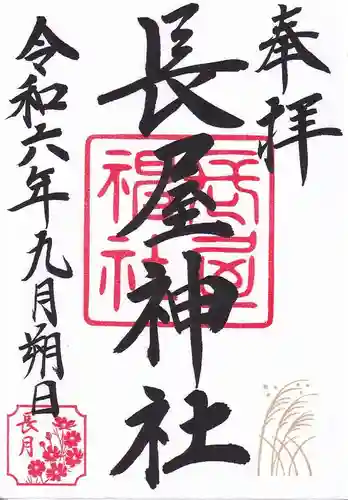 奉拝
長屋神社
令和六年九月朔日
長月